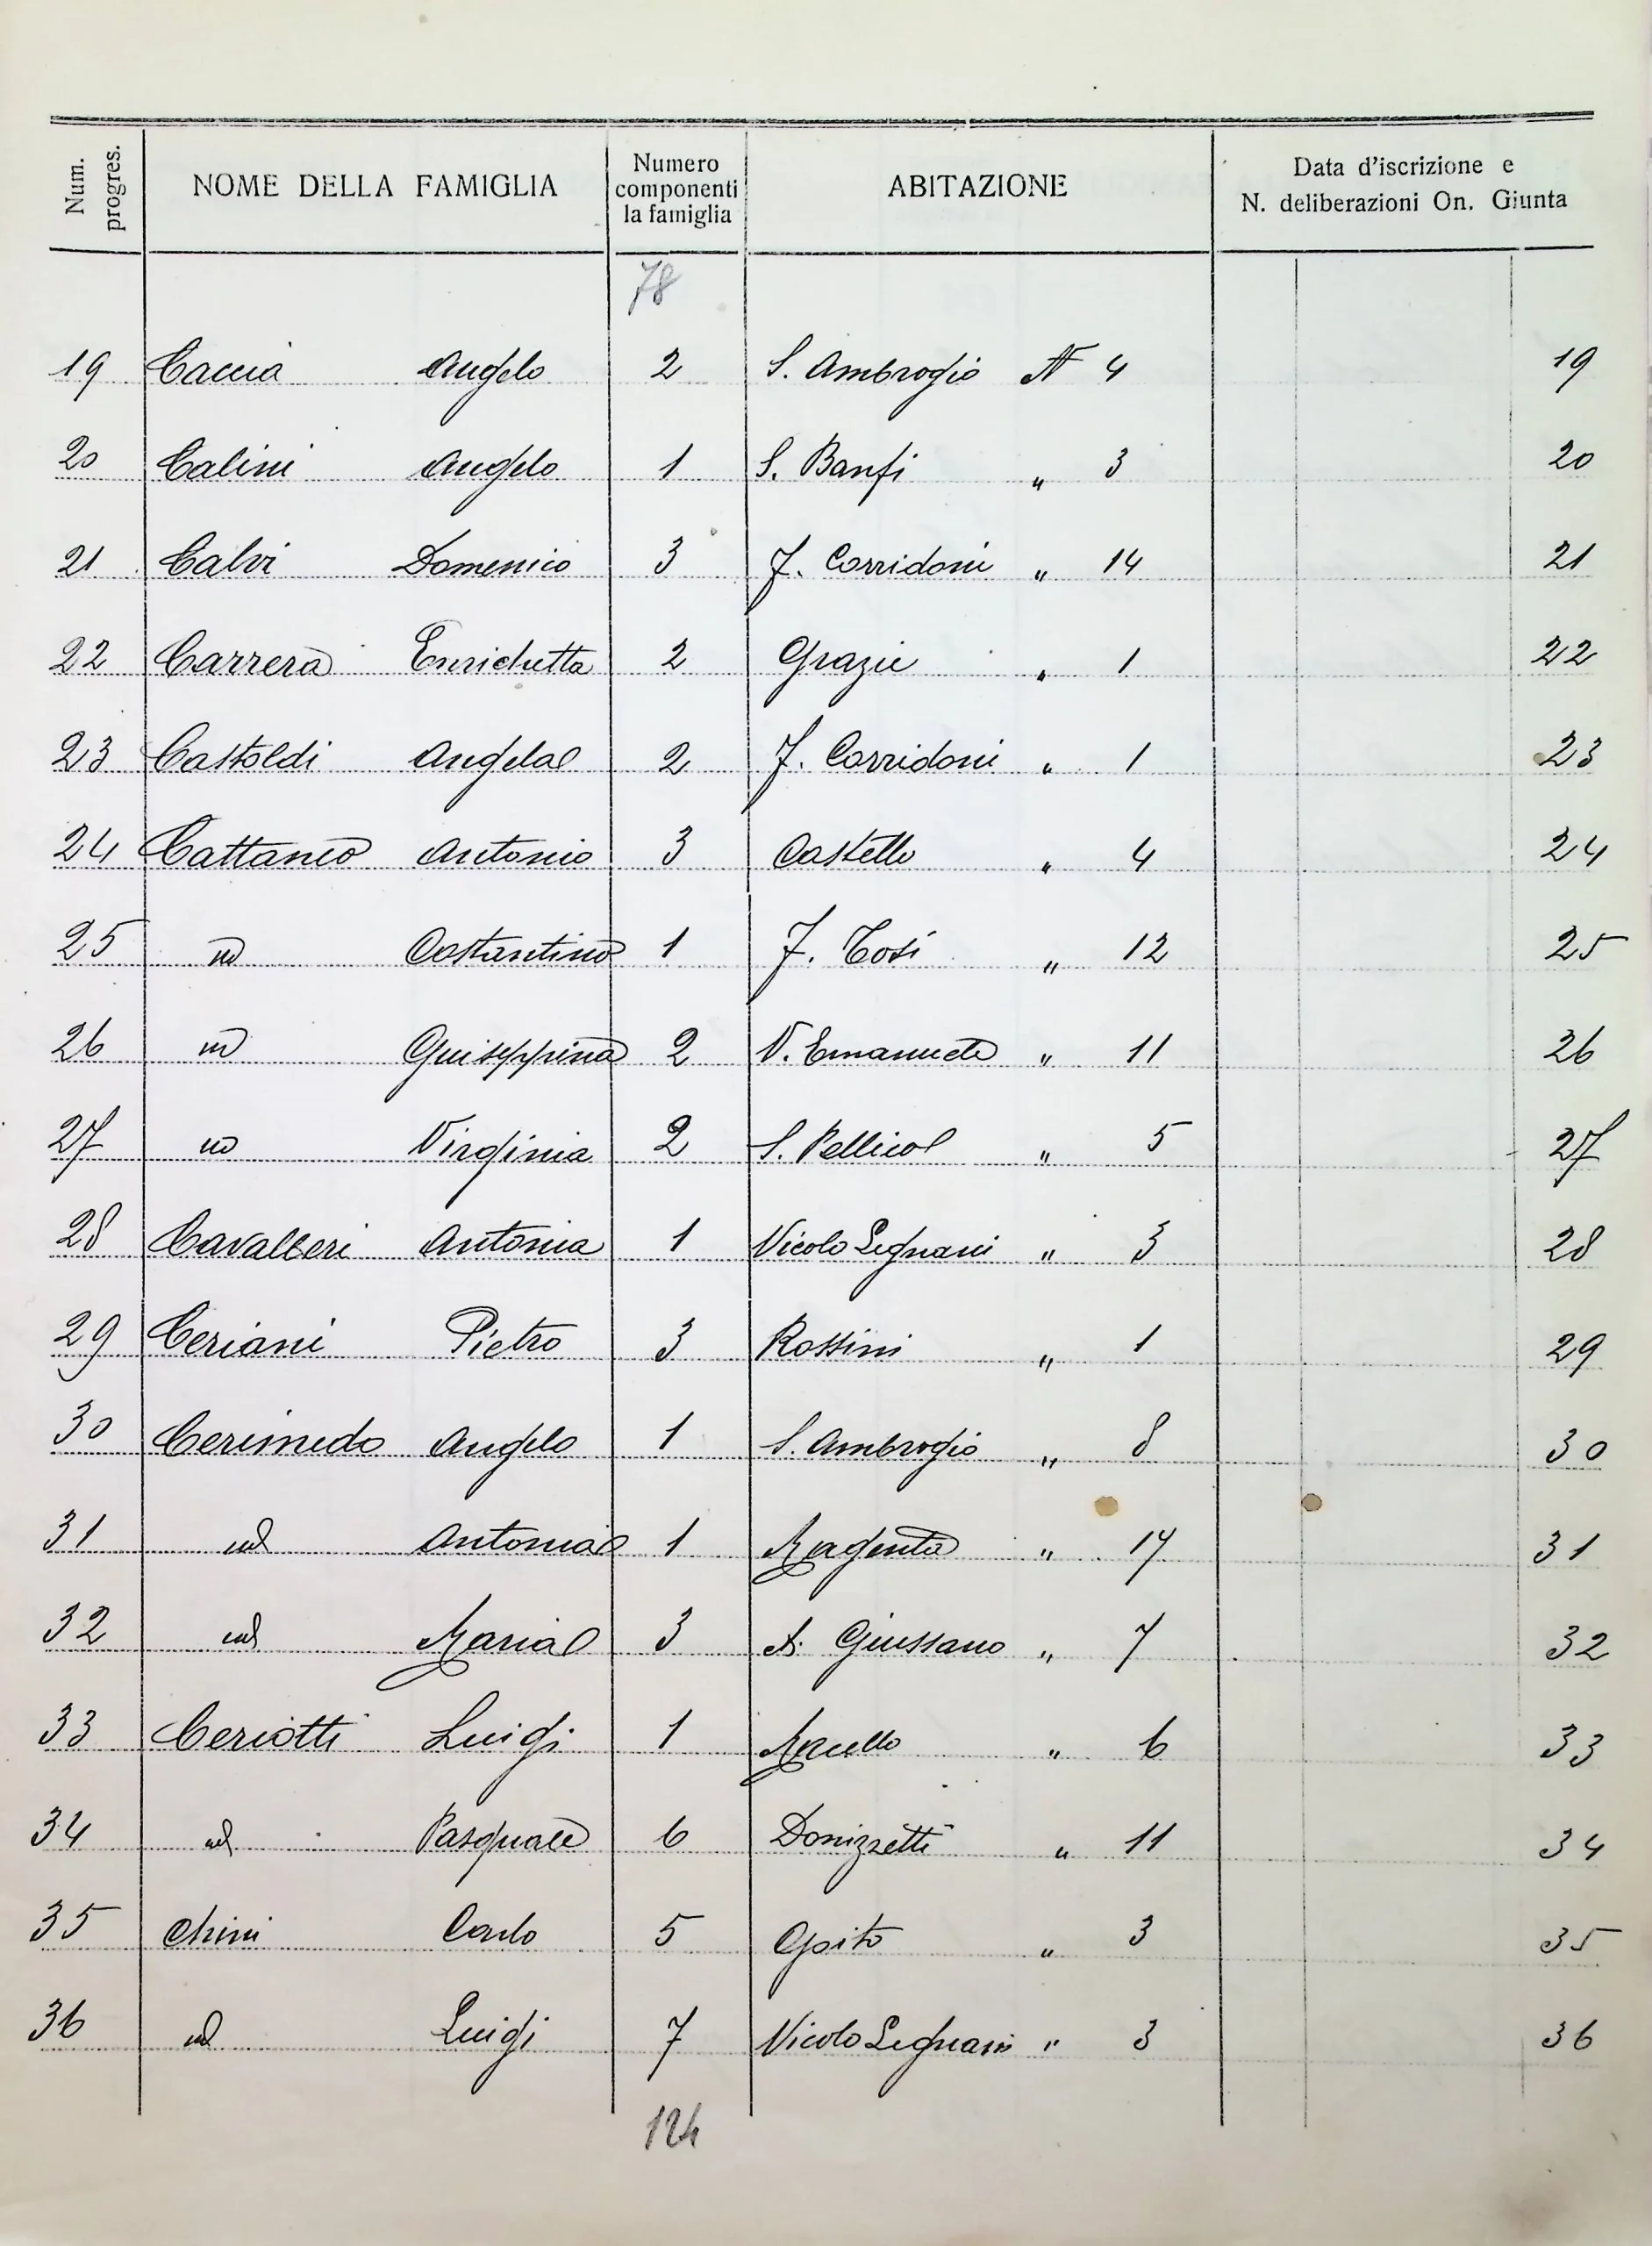 Num. progres. NOME DELLA FAMIGLIA Numero componenti la famiglia ABITAZIONE Data d'iscrizione e N. deliberazioni On. Giunta
78
19 Caccia Angelo 2 S. Ambrogio N 4 19
20 Calini Angelo 1 S. Banfi " 3 20
21 Calvi Domenico 3 F. Corridoni " 14 21
22 Carrera Enrichetta 2 Grazie " 1 22
23 Castoldi Angela 2 F. Corridoni " 1 23
24 Cattaneo Antonio 3 Castello " 4 24
25 id Costantino 1 F. Tosi " 12 25
26 id Guiseppina 2 V. Emanuele " 11 26
27 id Virginia 2 S. Pellico " 5 27
28 Cavalleri Antonia 1 Vicolo Legnani " 3 28
29 Ceriani Pietro 3 Rossini " 1 29
30 Cerimedo Angelo 1 S. Ambrogio " 8 30
31 id Antonia 1 Magenta " 17 31
32 id Maria 3 A. Giussano " 7 32
33 Ceriotti Luigi 1 Macello " 6 33
34 id Pasquale 6 Donizzetti " 11 34
35 Chini Carlo 5 Goito " 3 35
36 id Luigi 7 Vicolo Legnani " 3 36
124